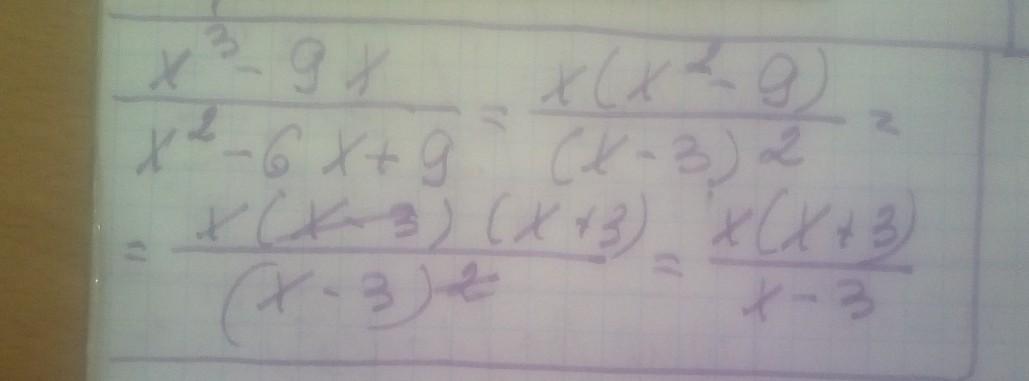 x³ - 9x / x² - 6x + 9 = x(x² - 9) / (x - 3)2 =
= x(x - 3)(x + 3) / (x - 3)2 = x(x + 3) / x - 3